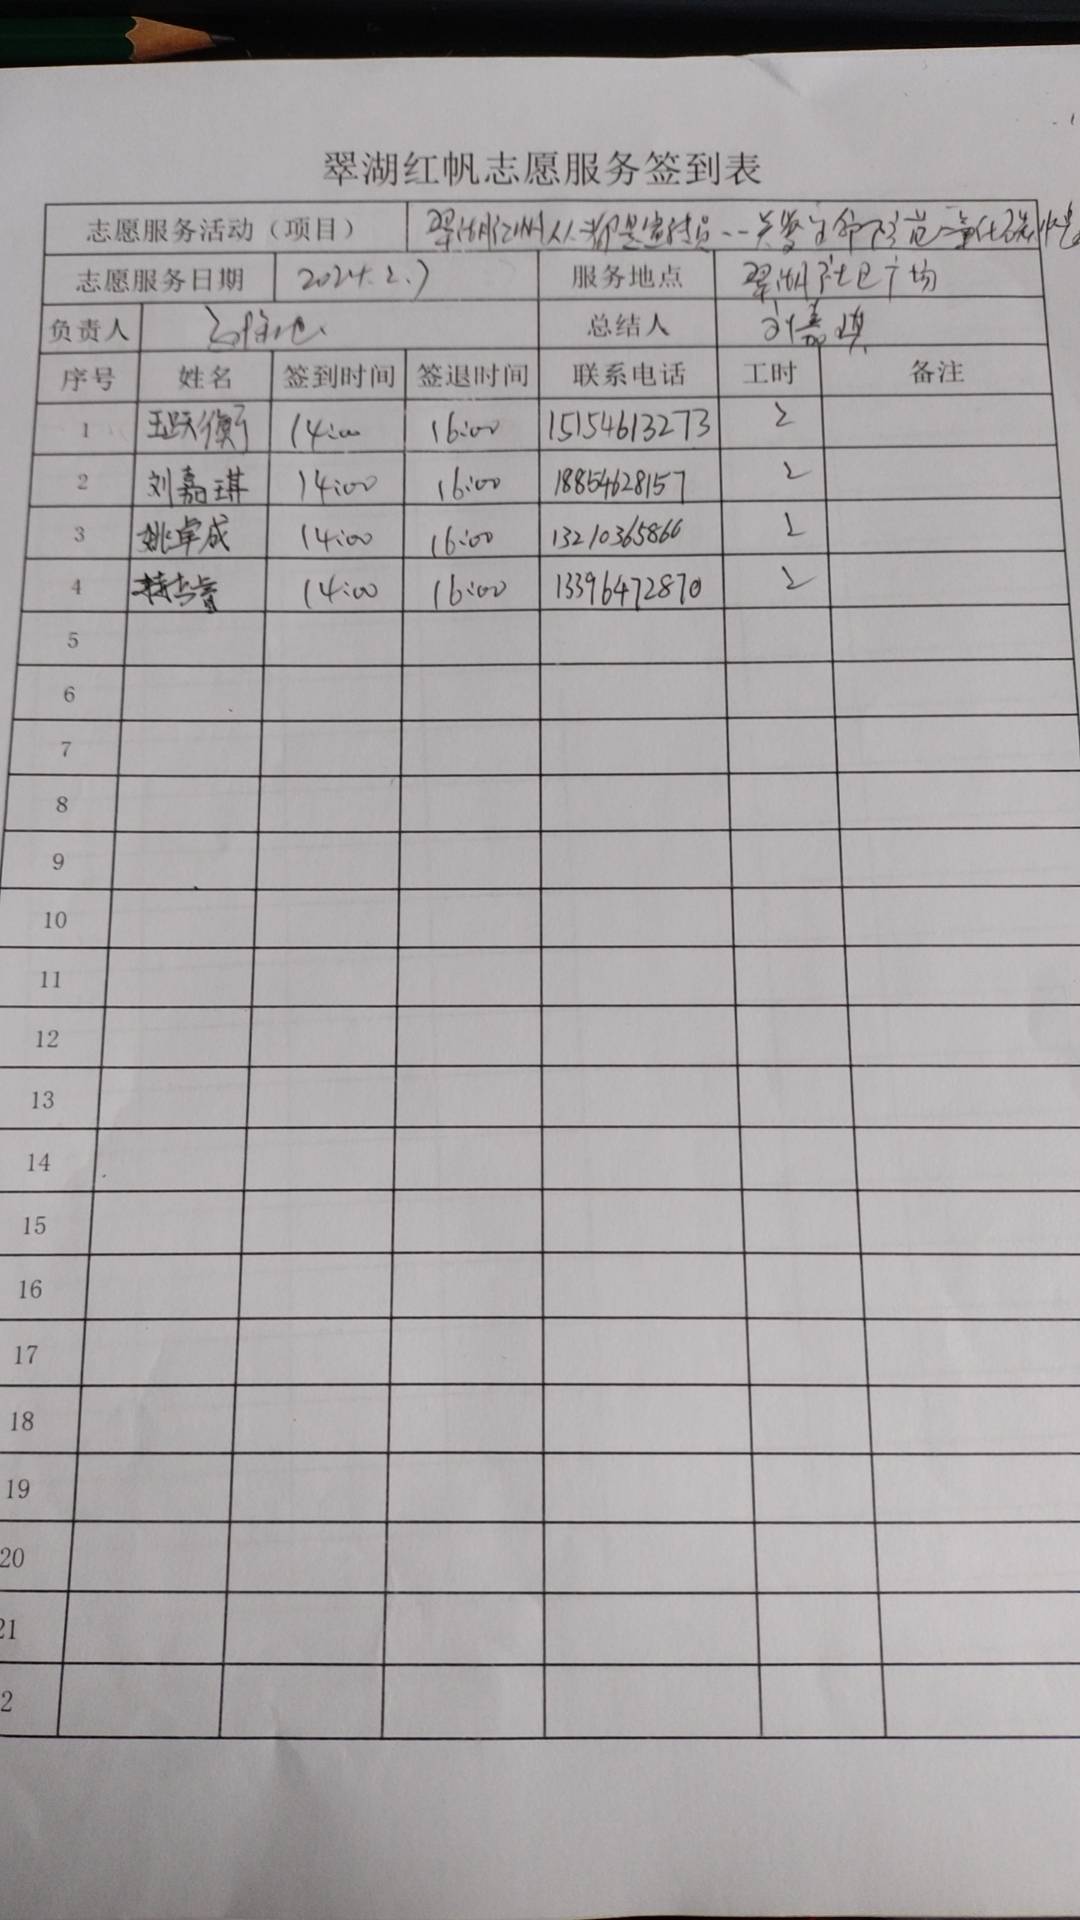 翠湖红帆志愿服务签到表
志愿服务活动（项目） 翠湖红帆人人都是宣传员--关爱生命 防范一氧化碳
志愿服务日期 2024.2.7 服务地点 翠湖社区广场
负责人 总结人 刘嘉琪
序号 姓名 签到时间 签退时间 联系电话 工时 备注
1 王跃衡 14:00 16:00 15154613273 2
2 刘嘉琪 14:00 16:00 18854628157 2
3 姚卓成 14:00 16:00 13210365866 2
4 14:00 16:00 13396472870 2
5
6
7
8
9
10
11
12
13
14
15
16
17
18
19
20
21
2